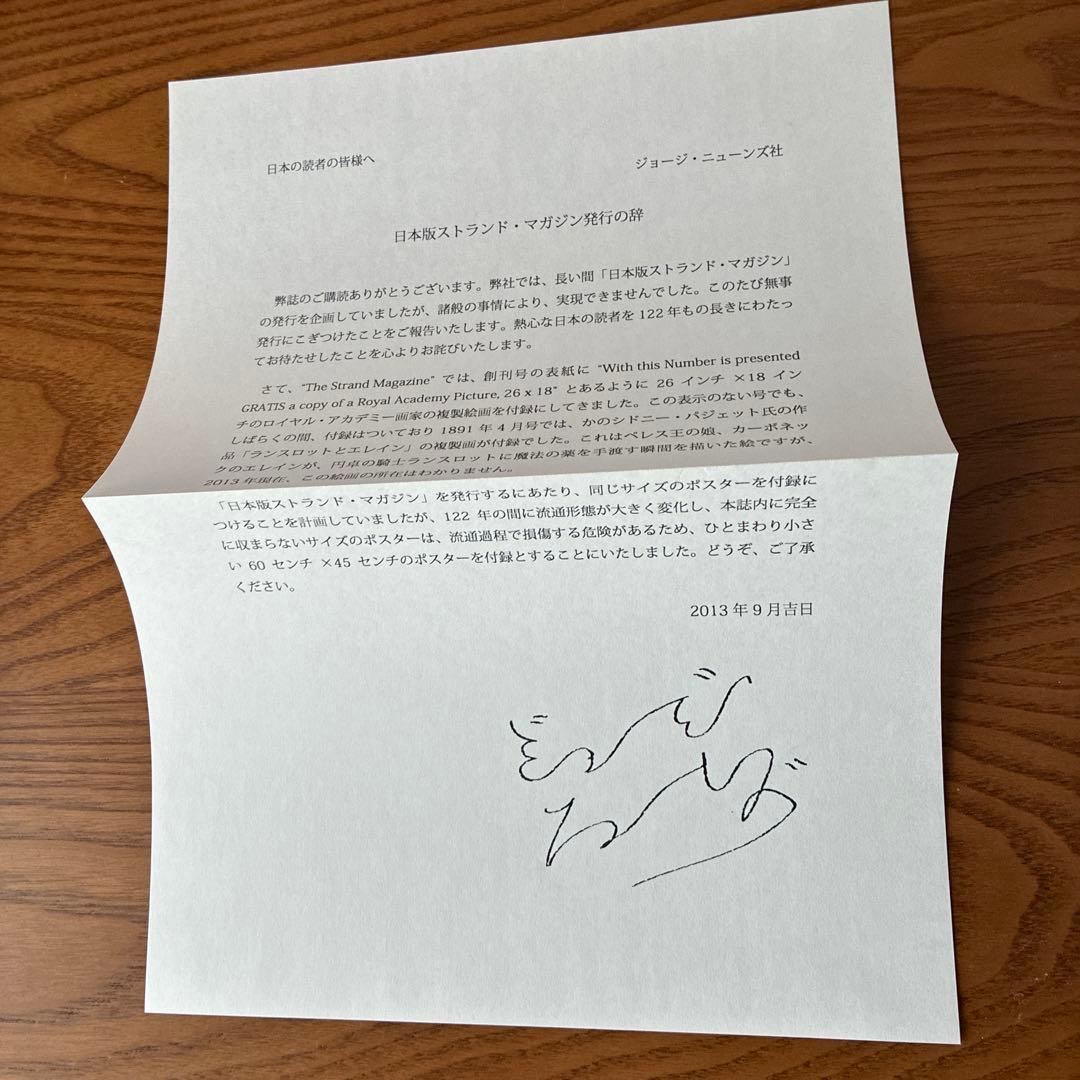 日本の読者の皆様へ
ジョージ・ニューンズ社
日本版ストランド・マガジン発行の辞
弊誌のご購読ありがとうございます。弊社では、長い間「日本版ストランド・マガジン」
の発行を企画していましたが、諸般の事情により、実現できませんでした。このたび無事
発行にこぎつけたことをご報告いたします。熱心な日本の読者を 122 年もの長きにわたっ
てお待たせしたことを心よりお詫びいたします。
さて、“The Strand Magazine” では、創刊号の表紙に “With this Number is presented
GRATIS a copy of a Royal Academy Picture, 26 x 18” とあるように 26 インチ ×18 イン
チのロイヤル・アカデミー画家の複製絵画を付録にしてきました。この表示のない号でも、
しばらくの間、付録はついており 1891 年 4 月号では、かのシドニー・パジェット氏の作
品「ランスロットとエレイン」の複製画が付録でした。これはペレス王の娘、カーボネッ
クのエレインが、円卓の騎士ランスロットに魔法の薬を手渡す瞬間を描いた絵ですが、
2013 年現在、この絵画の所在はわかりません。
「日本版ストランド・マガジン」を発行するにあたり、同じサイズのポスターを付録に
つけることを計画していましたが、122 年の間に流通形態が大きく変化し、本誌内に完全
に収まらないサイズのポスターは、流通過程で損傷する危険があるため、ひとまわり小さ
い 60 センチ ×45 センチのポスターを付録とすることにいたしました。どうぞ、ご了承
ください。
2013 年 9 月吉日